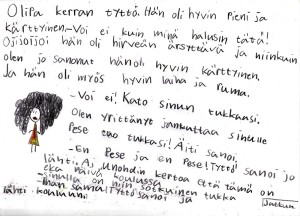 Olipa kerran tyttö. Hän oli hyvin pieni ja
kärttyinen. – Voi ei kuin minä halusin tätä!
Ojijoijoi hän oli hirveän ärsyttävä ja niinkuin
olen jo sanonut hän oli hyvin kärttyinen.
Ja hän oli myös hyvin laiha ja ruma.
– Voi ei! Kato sinun tukkaasi.
Olen yrittänyt jankuttaa sinulle
Pese tuo tukkasi! Äiti sanoi.
– En Pese ja en Pese! Tyttö
lähti. Ai unohdin kertoa että tämä on
eka päivä koulussa.
– sinulla on niin sottainen tukka
ihan sama! Tyttö sanoi ja
lähti kouluun.
Jatkuu